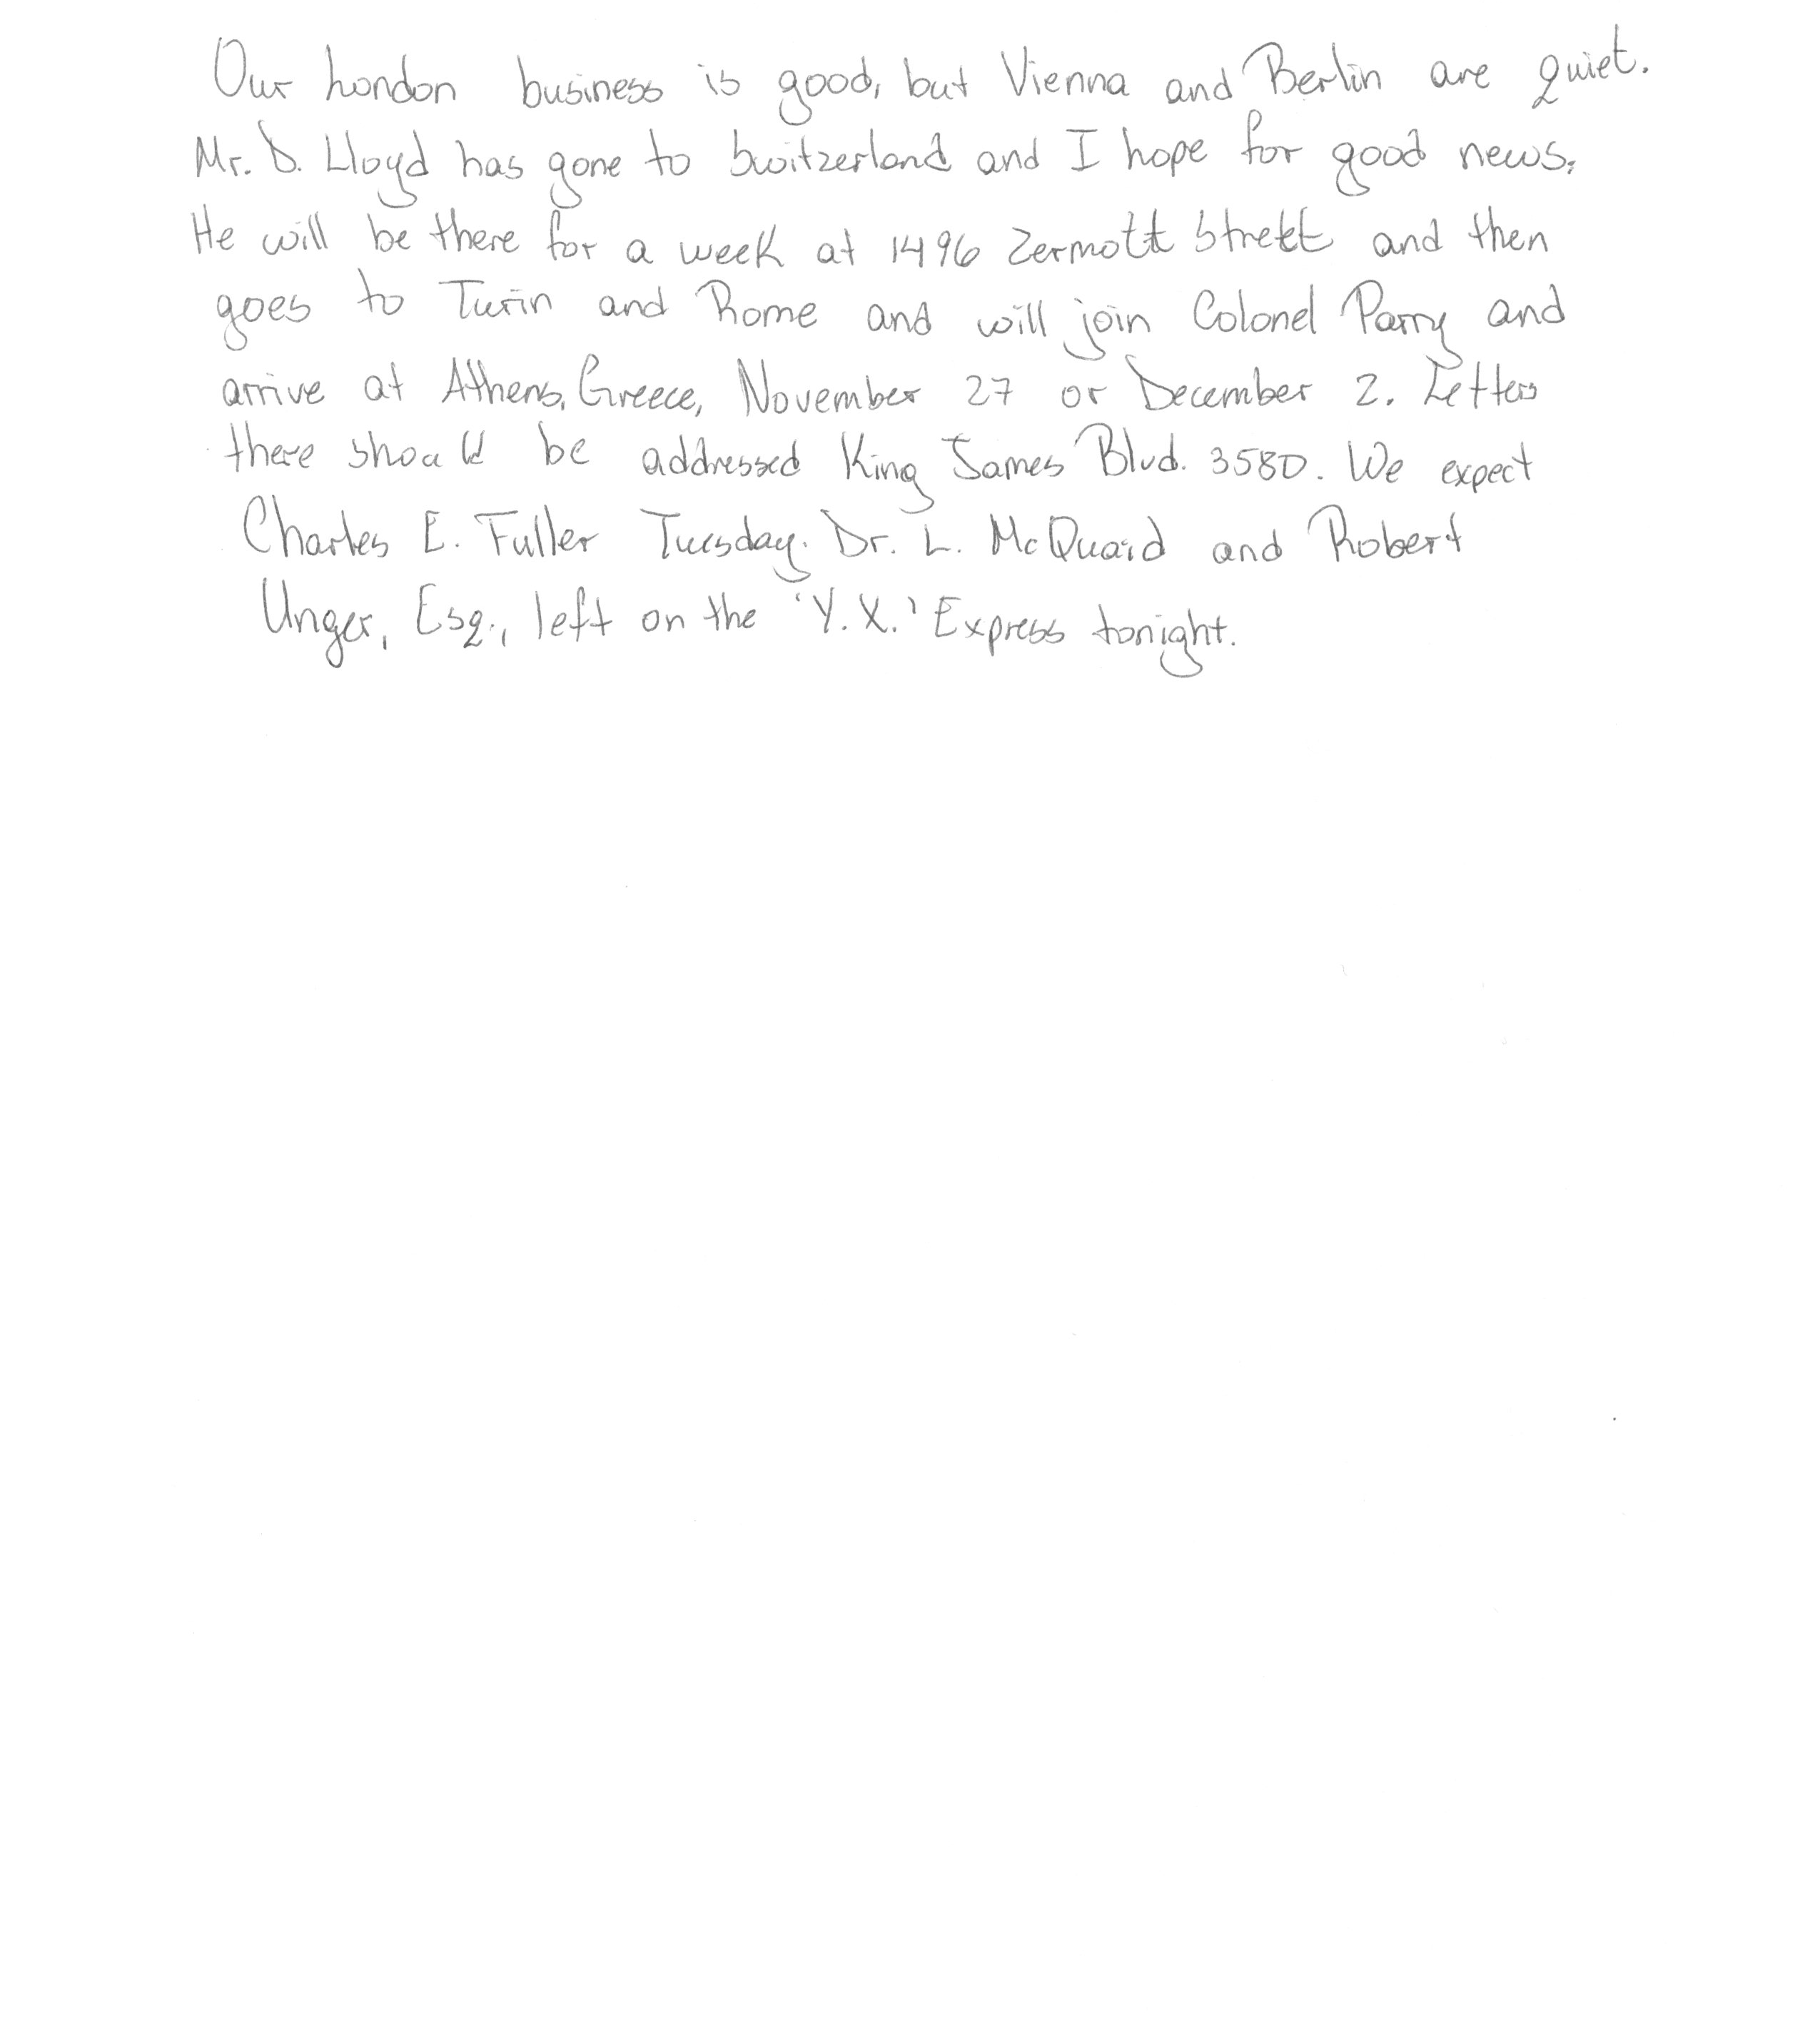 Our London business is good, but Vienna and Berlin are quiet.
Mr. D. Lloyd has gone to Switzerland and I hope for good news.
He will be there for a week at 1496 Zermott Street and then
goes to Turin and Rome and will join Colonel Parry and
arrive at Athens, Greece, November 27 or December 2. Letters
there should be addressed King James Blvd. 3580. We expect
Charles E. Fuller Tuesday. Dr. L. McQuaid and Robert
Unger, Esq., left on the 'Y.X.' Express tonight.